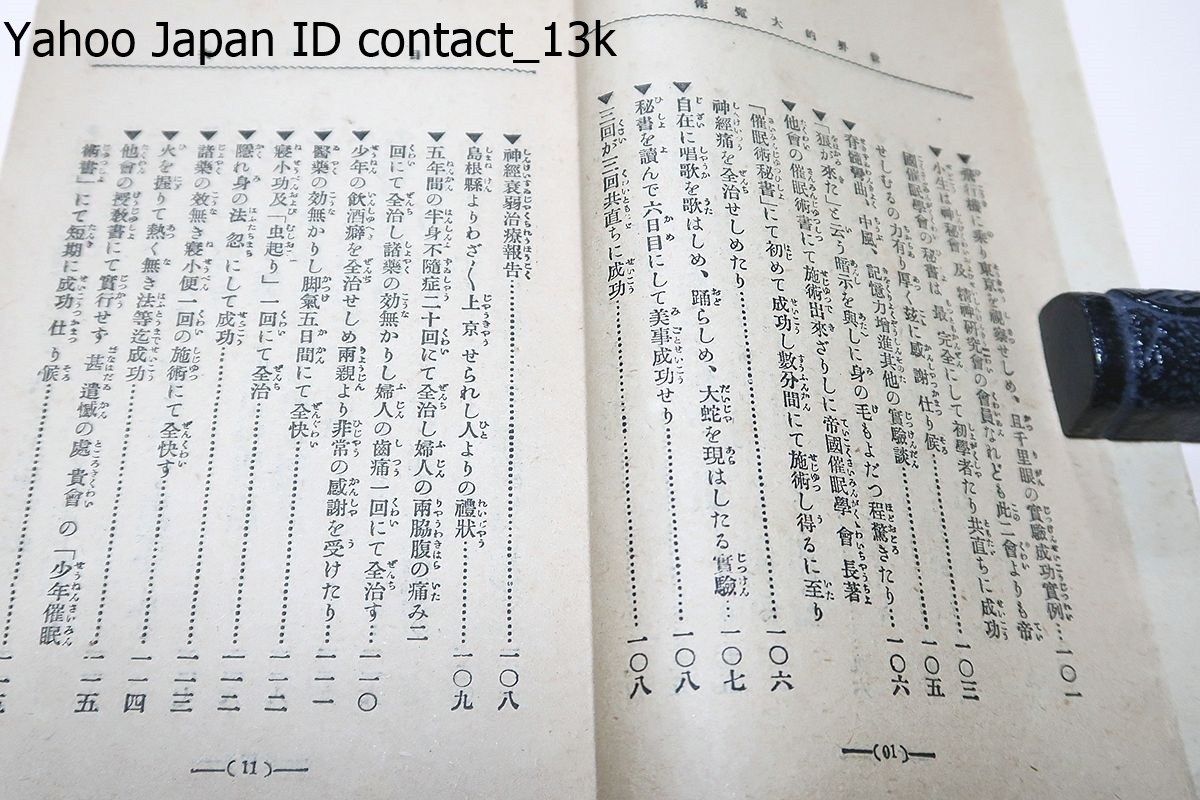 Yahoo Japan ID contact_13k
世界的大寶術
▼飛行機に乘り東京を觀察せしめ、且千里眼の實驗成功實例…一〇一
▼小生は神秘會及精神研究會の會員なれども此二會よりも帝
國催眠學會の秘書は最も完全にして初學者たり共直ちに成功
せしむるの力有り厚く玆に感謝仕り候…一〇三
▼脊髓彎曲、中風、記憶力增進其他の實驗談…一〇五
▼「狼が來た」と云う暗示を與しに身の毛もよだつ程驚きたり…一〇六
▼他會の催眠術書にて施術出來ざりしに帝國催眠學會長著
「催眠術秘書」にて初めて成功し數分間にて施術し得るに至り
神經痛を全治せしめたり…一〇六
▼自在に唱歌を歌はしめ、踊らしめ、大蛇を現はしたる實驗…一〇七
▼秘書を讀んで六日目にして美事成功せり…一〇八
▼三回が三回共直ちに成功…一〇八
—(01)—
▼神經衰弱治療報告…一〇八
▼島根縣よりわざ〱上京せられし人よりの禮狀…一〇九
▼五年間の半身不隨症二十回にて全治し婦人の兩脇腹の痛み二
回にて全治し諸藥の効無かりし婦人の齒痛一回にて全治す…一一〇
▼少年の飮酒癖を全治せしめ兩親より非常の感謝を受けたり…一一一
▼醫藥の効無かりし脚氣五日間にて全快…一一二
▼寢小功及「虫起り」一回にて全治…一一二
▼隱れ身の法忽にして成功…一一三
▼諸藥の效無き寢小便一回の施術にて全快す…一一四
▼火を握りて熱く無き法等迄成功…一一五
▼他會の授敎書にて實行せず甚遺憾の處貴會の「少年催眠
術書」にて短期に成功仕り候
—(11)—